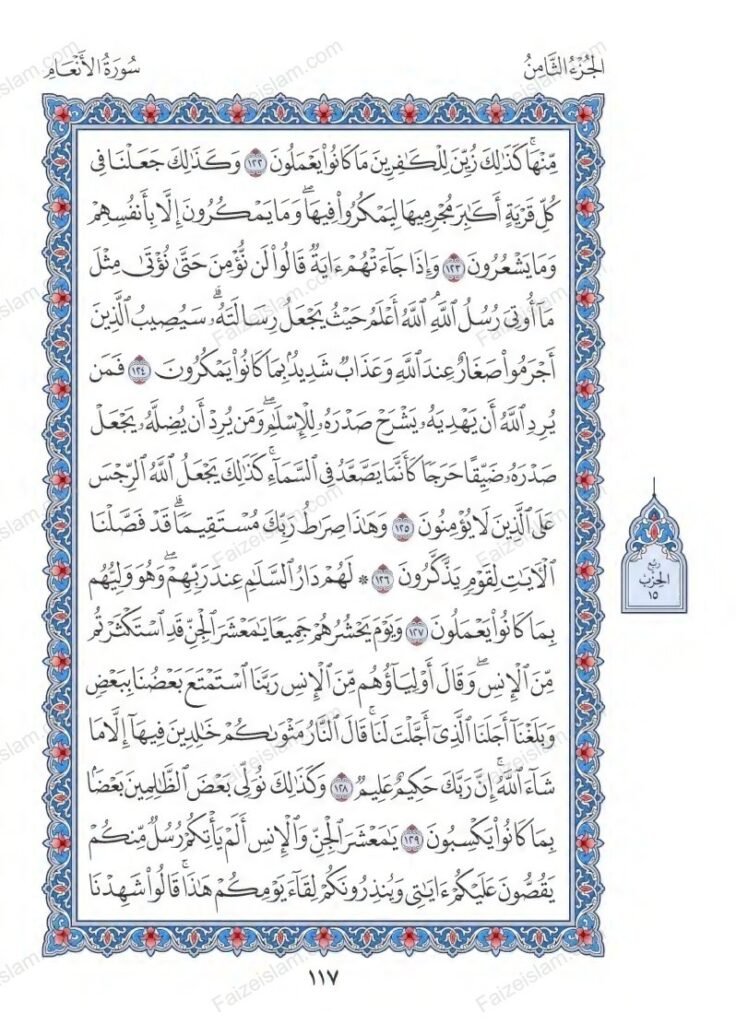 الجُزْءُ الثَّامِنُ
سُورَةُ الأَنْعَامِ
مِّنْهَاۚ كَذَٰلِكَ زُيِّنَ لِلْكَٰفِرِينَ مَا كَانُوا۟ يَعْمَلُونَ ١٢٢ وَكَذَٰلِكَ جَعَلْنَا فِى
كُلِّ قَرْيَةٍ أَكَٰبِرَ مُجْرِمِيهَا لِيَمْكُرُوا۟ فِيهَاۖ وَمَا يَمْكُرُونَ إِلَّا بِأَنفُسِهِمْ
وَمَا يَشْعُرُونَ ١٢٣ وَإِذَا جَآءَتْهُمْ ءَايَةٌ قَالُوا۟ لَن نُّؤْمِنَ حَتَّىٰ نُؤْتَىٰ مِثْلَ
مَآ أُوتِىَ رُسُلُ ٱللَّهِۘ ٱللَّهُ أَعْلَمُ حَيْثُ يَجْعَلُ رِسَالَتَهُۥۗ سَيُصِيبُ ٱلَّذِينَ
أَجْرَمُوا۟ صَغَارٌ عِندَ ٱللَّهِ وَعَذَابٌ شَدِيدٌۢ بِمَا كَانُوا۟ يَمْكُرُونَ ١٢٤ فَمَن
يُرِدِ ٱللَّهُ أَن يَهْدِيَهُۥ يَشْرَحْ صَدْرَهُۥ لِلْإِسْلَٰمِۖ وَمَن يُرِدْ أَن يُضِلَّهُۥ يَجْعَلْ
صَدْرَهُۥ ضَيِّقًا حَرَجًا كَأَنَّمَا يَصَّعَّدُ فِى ٱلسَّمَآءِۚ كَذَٰلِكَ يَجْعَلُ ٱللَّهُ ٱلرِّجْسَ
عَلَى ٱلَّذِينَ لَا يُؤْمِنُونَ ١٢٥ وَهَٰذَا صِرَٰطُ رَبِّكَ مُسْتَقِيمًاۗ قَدْ فَصَّلْنَا
ٱلْءَايَٰتِ لِقَوْمٍ يَذَّكَّرُونَ ١٢٦ ۞ لَهُمْ دَارُ ٱلسَّلَٰمِ عِندَ رَبِّهِمْۖ وَهُوَ وَلِيُّهُم
بِمَا كَانُوا۟ يَعْمَلُونَ ١٢٧ وَيَوْمَ يَحْشُرُهُمْ جَمِيعًا يَٰمَعْشَرَ ٱلْجِنِّ قَدِ ٱسْتَكْثَرْتُم
مِّنَ ٱلْإِنسِۖ وَقَالَ أَوْلِيَآؤُهُم مِّنَ ٱلْإِنسِ رَبَّنَا ٱسْتَمْتَعَ بَعْضُنَا بِبَعْضٍ
وَبَلَغْنَآ أَجَلَنَا ٱلَّذِىٓ أَجَّلْتَ لَنَاۚ قَالَ ٱلنَّارُ مَثْوَىٰكُمْ خَٰلِدِينَ فِيهَآ إِلَّا مَا
شَآءَ ٱللَّهُۗ إِنَّ رَبَّكَ حَكِيمٌ عَلِيمٌ ١٢٨ وَكَذَٰلِكَ نُوَلِّى بَعْضَ ٱلظَّٰلِمِينَ بَعْضًۢا
بِمَا كَانُوا۟ يَكْسِبُونَ ١٢٩ يَٰمَعْشَرَ ٱلْجِنِّ وَٱلْإِنسِ أَلَمْ يَأْتِكُمْ رُسُلٌ مِّنكُمْ
يَقُصُّونَ عَلَيْكُمْ ءَايَٰتِى وَيُنذِرُونَكُمْ لِقَآءَ يَوْمِكُمْ هَٰذَاۚ قَالُوا۟ شَهِدْنَا
رُبْعُ
الحِزْبِ
١٥
١١٧
Faizeislam.com